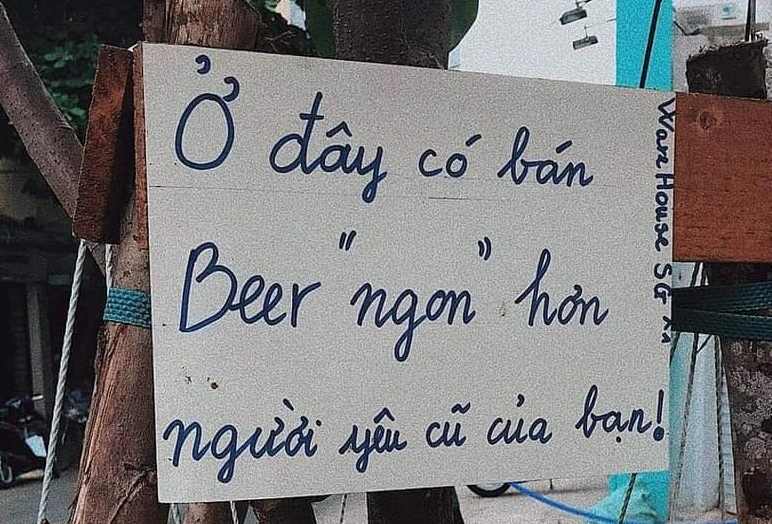 Ở đây có bán
Beer "ngon" hơn
người yêu cũ của bạn!
WareHouse SG